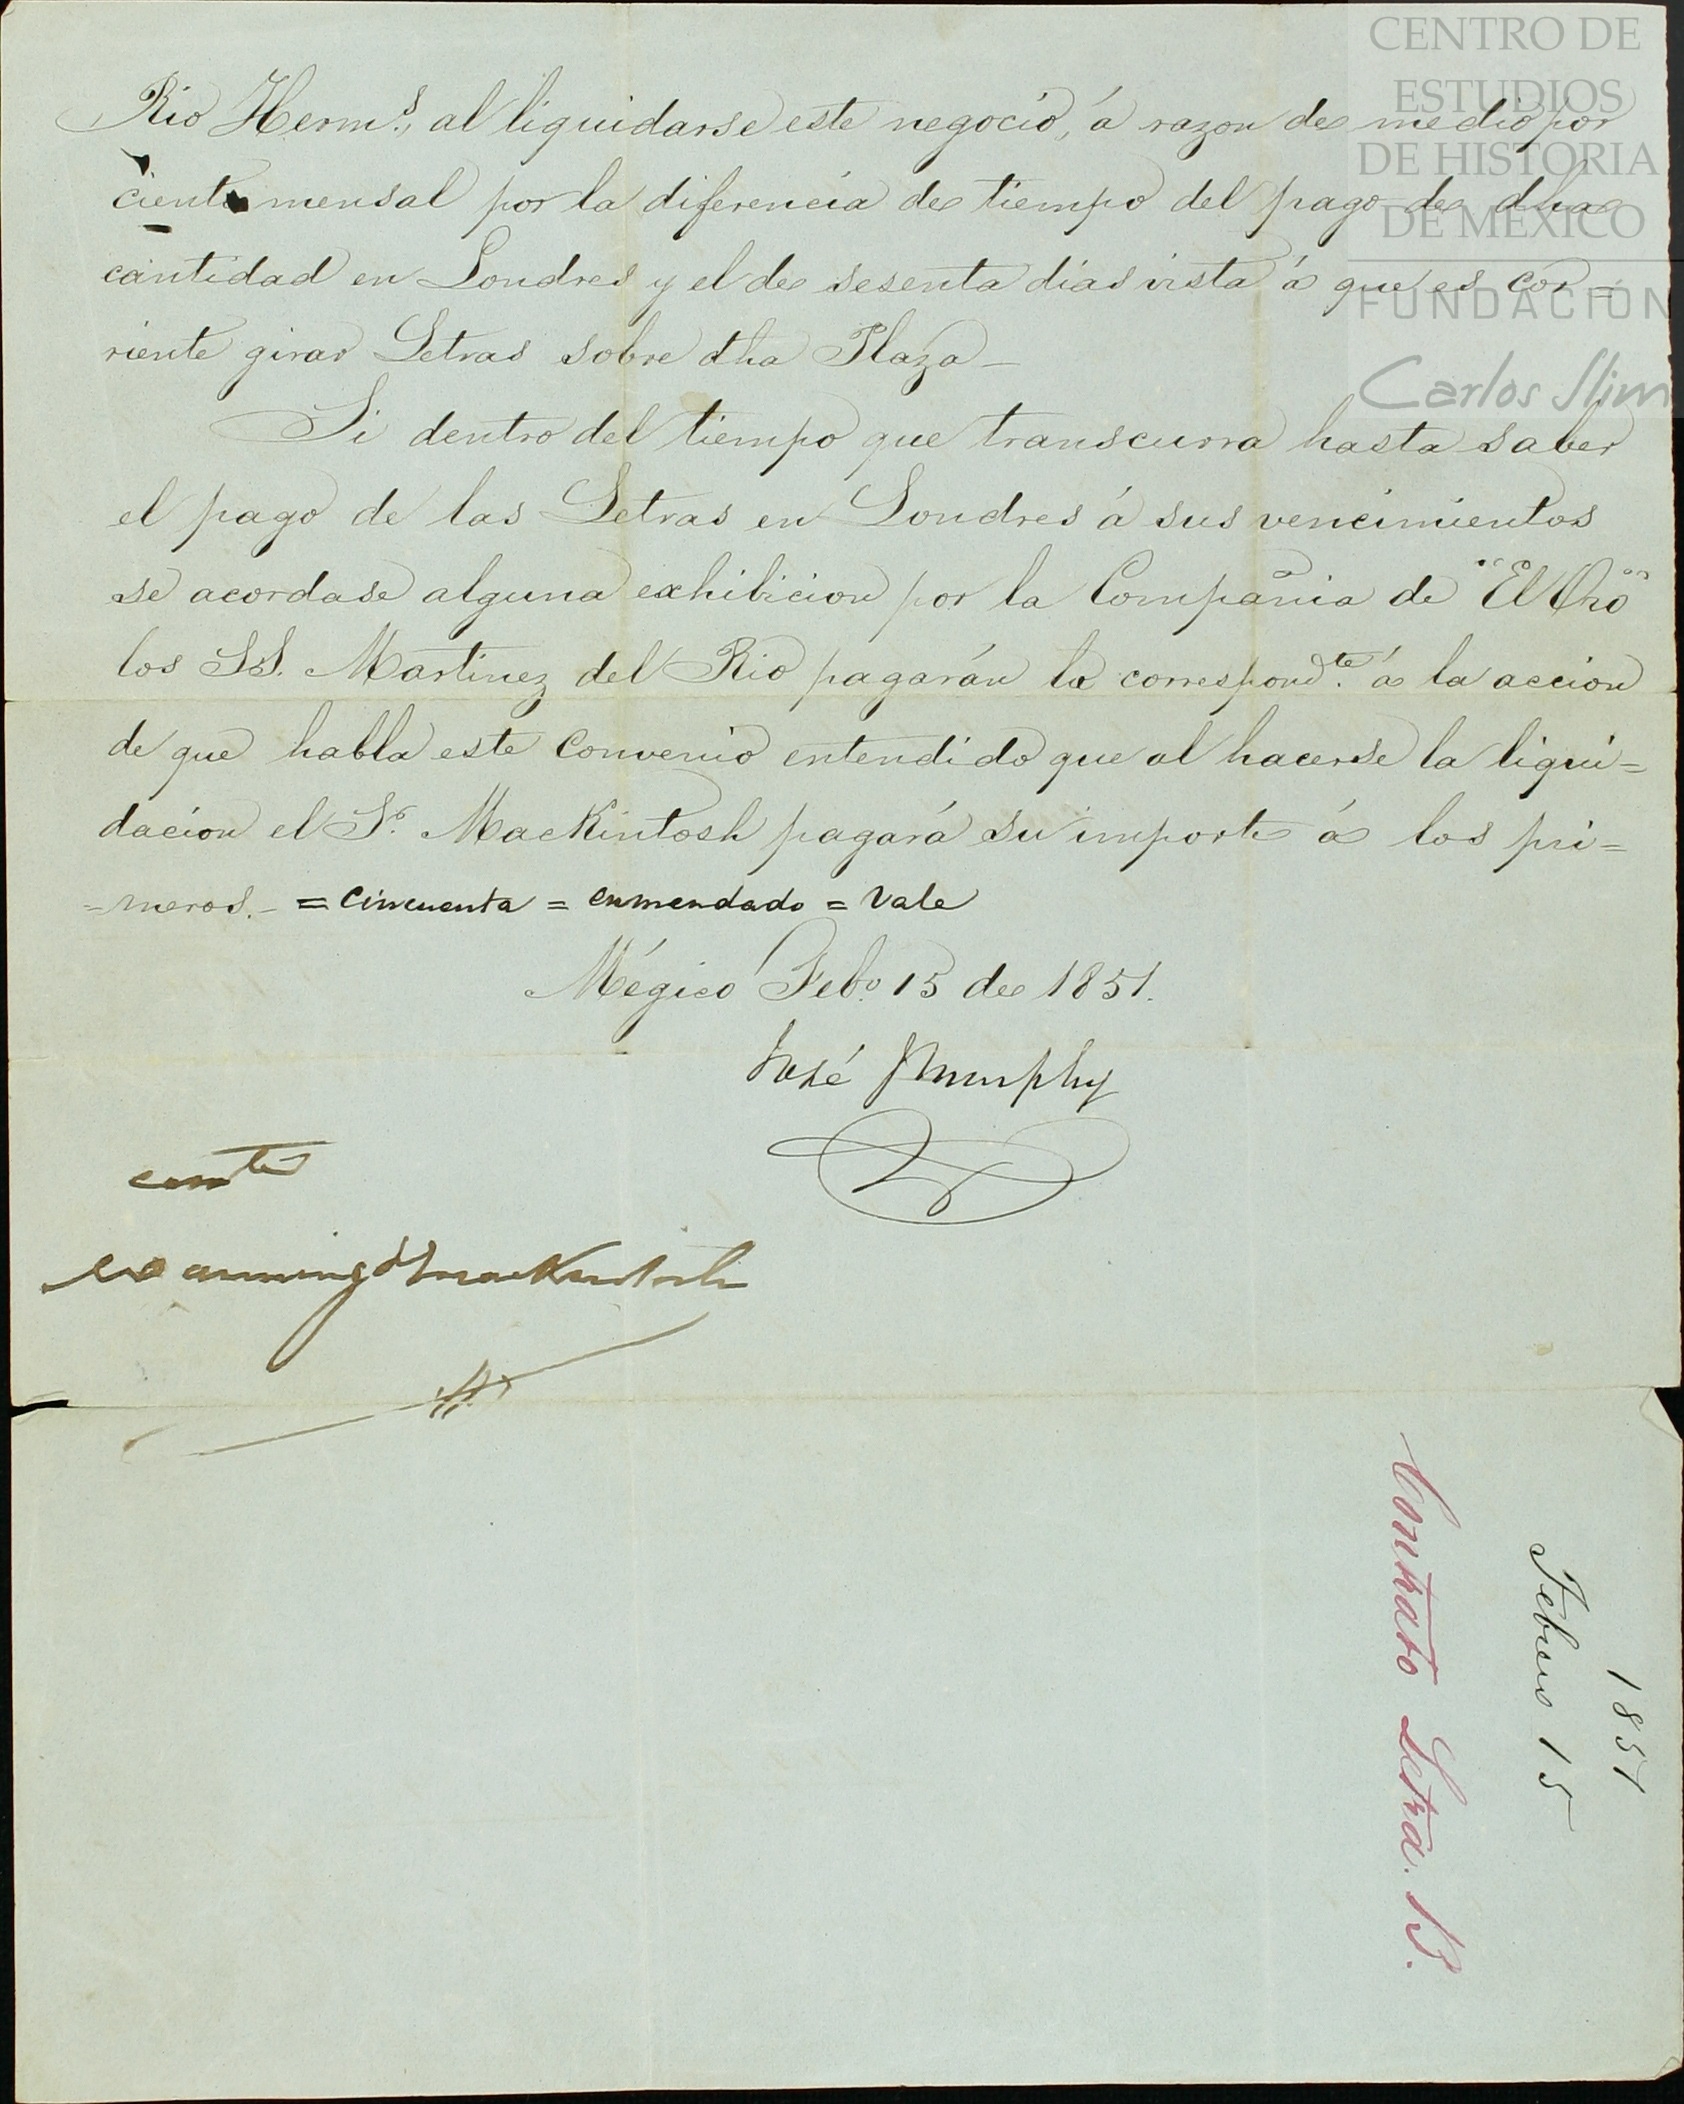 Rio Herm.s, al liquidarse este negocio, á razon de medio por
ciento mensal por la diferencia de tiempo del pago de dha
cantidad en Londres y el de sesenta dias vista á que es cor=
riente girar Letras sobre dha Plaza_
Si dentro del tiempo que transcurra hasta saber
el pago de las Letras en Londres á sus vencimientos
se acordase alguna exhibicion por la Compañia de "El Oro"
los SS. Martinez del Rio pagarán la correspond.te á la accion
de que habla este convenio entendido que al hacerse la liqui=
dacion el S.r MacKintosh pagará su importe á los pri=
=meros._ = cincuenta = enmendado = Vale
Mégico Feb.o 15 de 1851.
José Murphy
Manning & MacKintosh
1851
Febrero 15
Contrato Letra. B.
CENTRO DE
ESTUDIOS
DE HISTORIA
DE MÉXICO
FUNDACIÓN
Carlos Slim